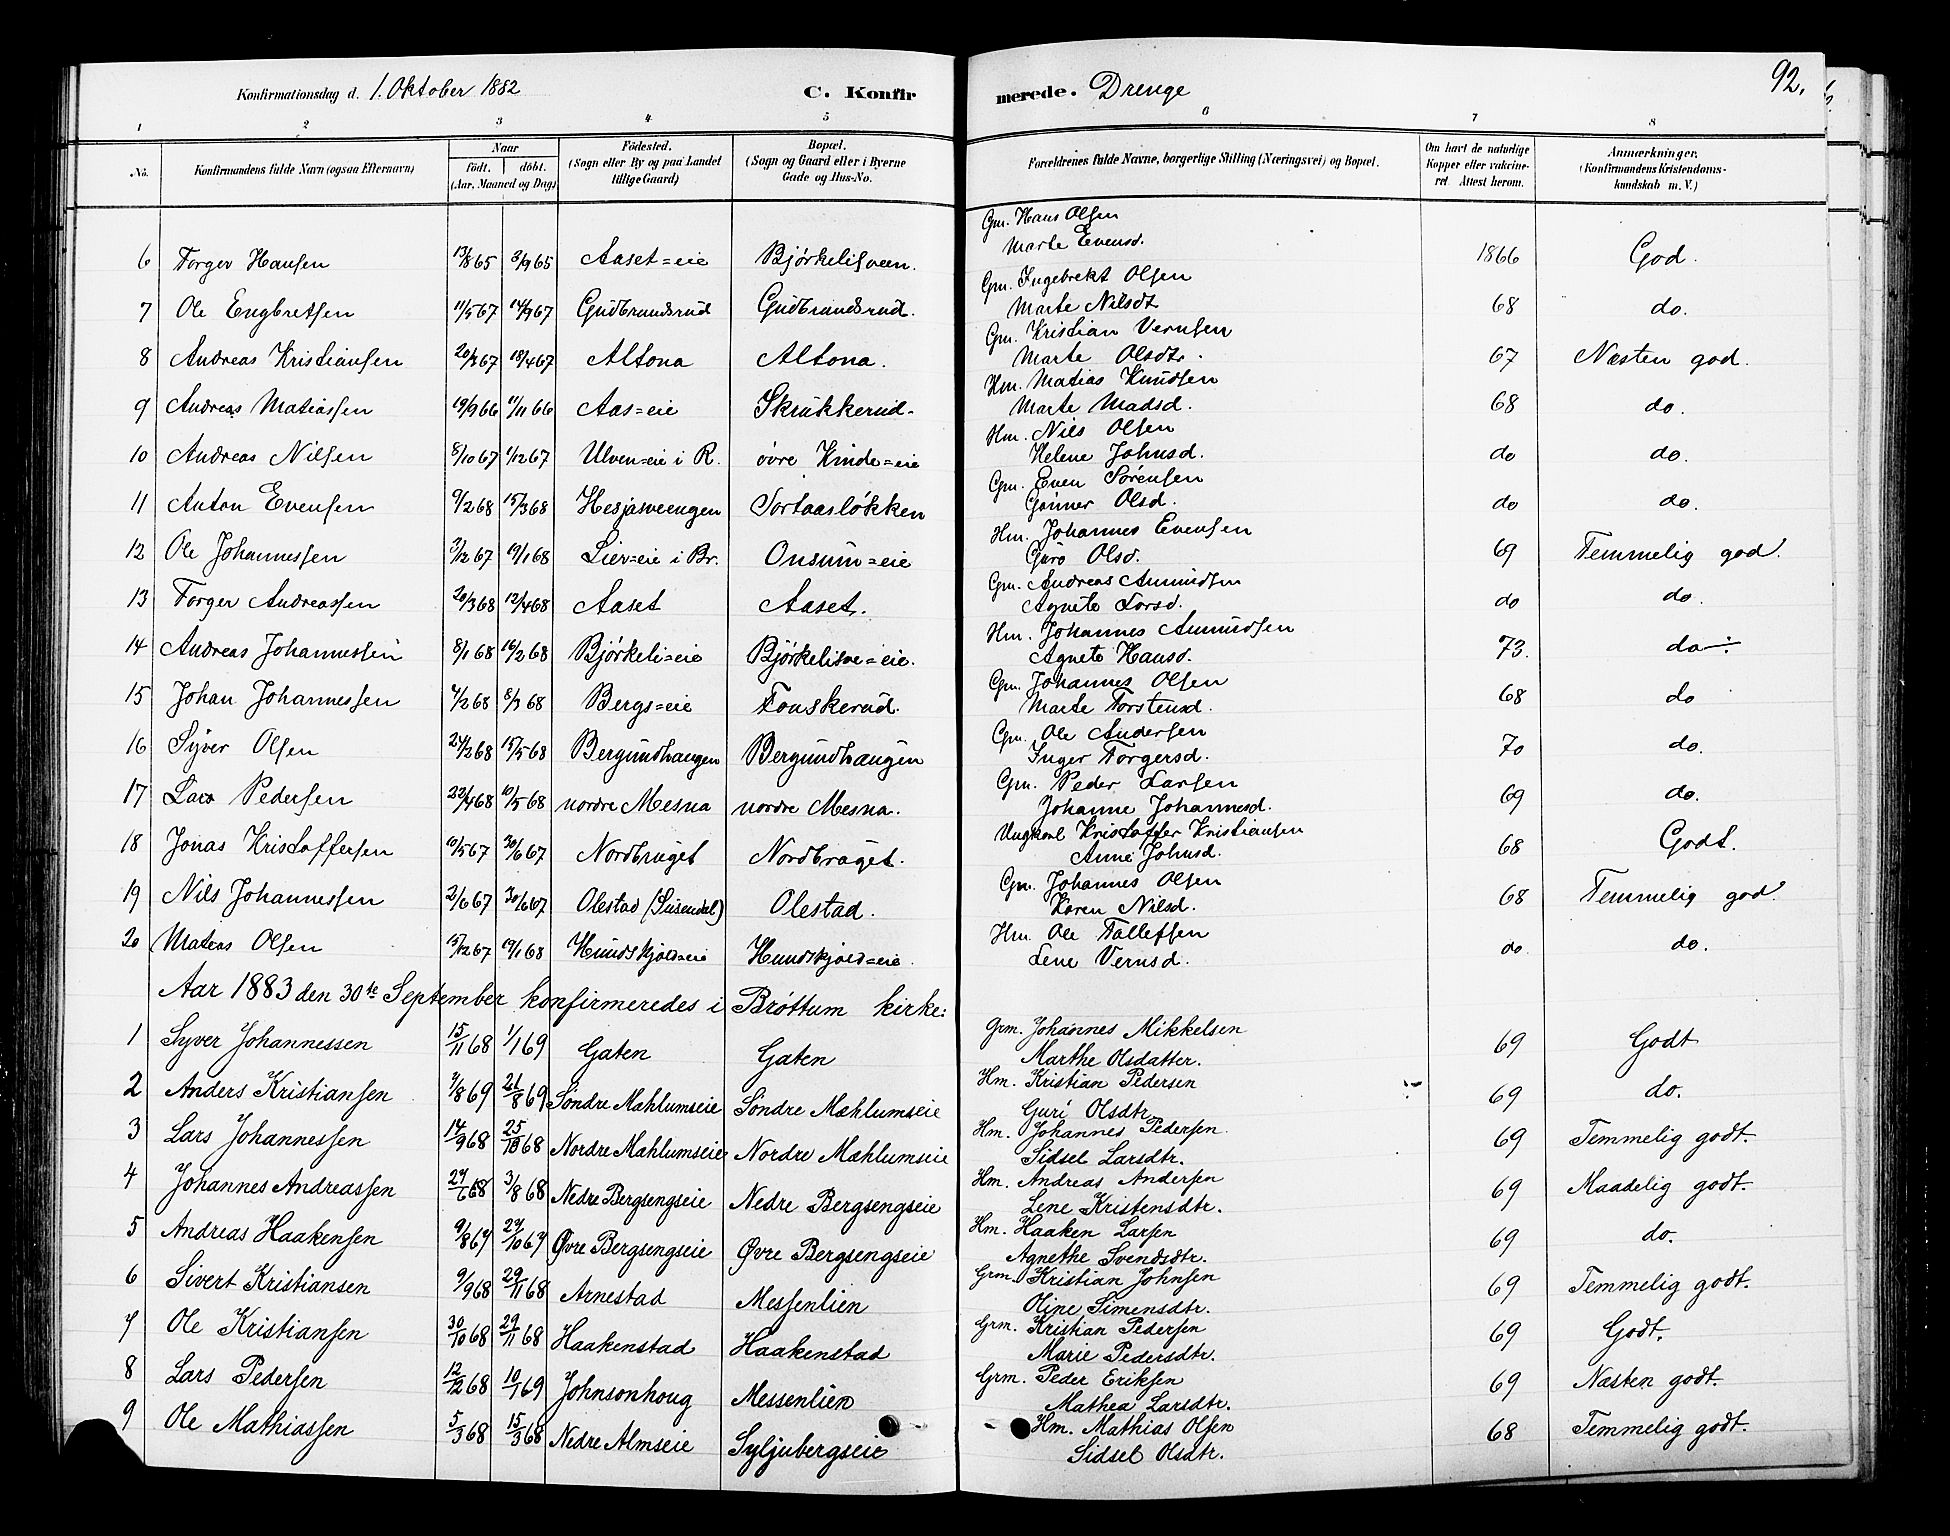 Konfirmationsdag d. 1. Oktober 1882 C. Konfirmerede. Drenge 92.
1 2 3 4 5 6 7 8
No. Konfirmandens fulde Navn (ogsaa Efternavn) Naar födt. döbt. (Aar, Maaned og Dag) Födested. (Sogn eller By og paa Landet tillige Gaard) Bopæl. (Sogn og Gaard eller i Byerne Gade og Hus-No. Forældrenes fulde Navne, borgerlige Stilling (Næringsvei) og Bopæl. Om havt de naturlige Kopper eller vakcineret. Attest herom. Anmærkninger. (Konfirmandens Kristendomskundskab m. V.)
Gm. Hans Olsen
6 Torger Hansen 13/8 65 3/9 65 Aaset=eie Bjørkelisveen. Marte Evensd. 1866 God.
Gm. Ingebrekt Olsen
7 Ole Engbretsen 11/5 67 14/9 67 Gudbrandsrud Gudbrandsrud. Marte Nilsdt 68 do.
Gm. Kristian Vernsen
8 Andreas Kristiansen 20/3 67 18/4 67 Altona Altona. Marte Olsdtr. 67 Næsten god.
Hm. Matias Knudsen
9 Andreas Matiassen 19/9 66 11/11 66 Aas=eie Skrukkerud. Marte Madsd. 68 do.
Hm. Nils Olsen
10 Andreas Nilsen 8/10 67 1/12 67 Ulven=eie i R. övre Kinde=eie Helene Johnsd. do do.
Gm. Even Sørensen
11 Anton Evensen 9/2 68 15/3 68 Hesjasveengen Tortaasløkken Gunner Olsd. do do.
Hm. Johannes Evensen
12 Ole Johannessen 3/12 67 19/1 68 Lier=eie i Br. Onsum=eie Guro Olsd. 69 Temmelig god.
Gm. Andreas Amundsen
13 Torger Andreassen 20/3 68 12/4 68 Aaset Aaset. Agnete Larsd. do do.
Hm. Johannes Amundsen
14 Andreas Johannessen 8/1 68 16/2 68 Bjørkeli=eie Bjørkelisve=eie. Agnete Hansd. 73. do
Gm. Johannes Olsen
15 Johan Johannessen 4/2 68 8/3 68 Bergs=eie Fonskerud. Marte Torstensd. 68 do
Gm. Ole Andersen
16 Syver Olsen 24/2 68 15/5 68 Bergundhaugen Bergundhaugen Inger Torgersd. 70 do.
Gm. Peder Larsen
17 Lars Pedersen 22/4 68 10/5 68 nordre Mesna nordre Mesna. Johanne Johannesd. 69 do.
Ungkarl Kristoffer Kristiansen
18 Jonas Kristoffersen 10/5 67 30/6 67 Nordbraget Nordbraget. Anne Johnsd. 68 Godt.
Gm. Johannes Olsen
19 Nils Johannessen 2/6 67 30/6 67 Olestad (Susendal) Olestad. Karen Nilsd. 68 Temmelig god
Hm. Ole Tallefsen
20 Matias Olsen 15/12 67 19/1 68 Hundskjold=eie Hundskjold=eie. Lene Vernsd. do do.
Aar 1883 den 30te September konfirmeredes i Brøttum kirke:
Grm. Johannes Mikkelsen
1 Syver Johannessen 15/11 68 1/1 69 Gaten Gaten Marthe Olsdatter. 69 Godt
Hm. Kristian Pedersen
2 Anders Kristiansen 4/8 69 21/8 69 Søndre Mæhlumseie Søndre Mæhlumseie Guri Olsdtr. 69 do.
Hm. Johannes Pedersen.
3 Lars Johannessen 14/9 68 25/10 68 Nordre Mæhlumseie Nordre Mæhlumseie Sidsel Larsdtr. 69 Temmelig godt.
Hm. Andreas Andersen
4 Johannes Andreassen 27/6 68 3/8 68 Nedre Bergsengseie Nedre Bergsengseie Lene Kristensdtr. 69 Maadelig godt.
Hm. Haaken Larsen
5 Andreas Haakensen 9/8 67 27/10 67 Øvre Bergsengseie Øvre Bergsengseie Agnethe Svendsdtr. 69 do.
Grm. Kristian Johnsen
6 Sivert Kristiansen 9/9 68 29/11 68 Arnestad Messenlien Oline Simensdtr. 69 Temmelig godt.
Grm. Kristian Pedersen
7 Ole Kristiansen 30/10 68 29/11 68 Haakenstad Haakenstad Marie Pedersdtr. 69 Godt.
Grm. Peder Eriksen
8 Lars Pedersen 12/12 68 10/1 69 Johnsonhoug Messenlien Mathea Larsdtr. 69 Næsten godt.
Hm. Mathias Olsen
9 Ole Mathiassen 5/3 68 15/3 68 Nedre Almseie Syljubergseie Sidsel Olsdtr. 68 Temmelig godt.